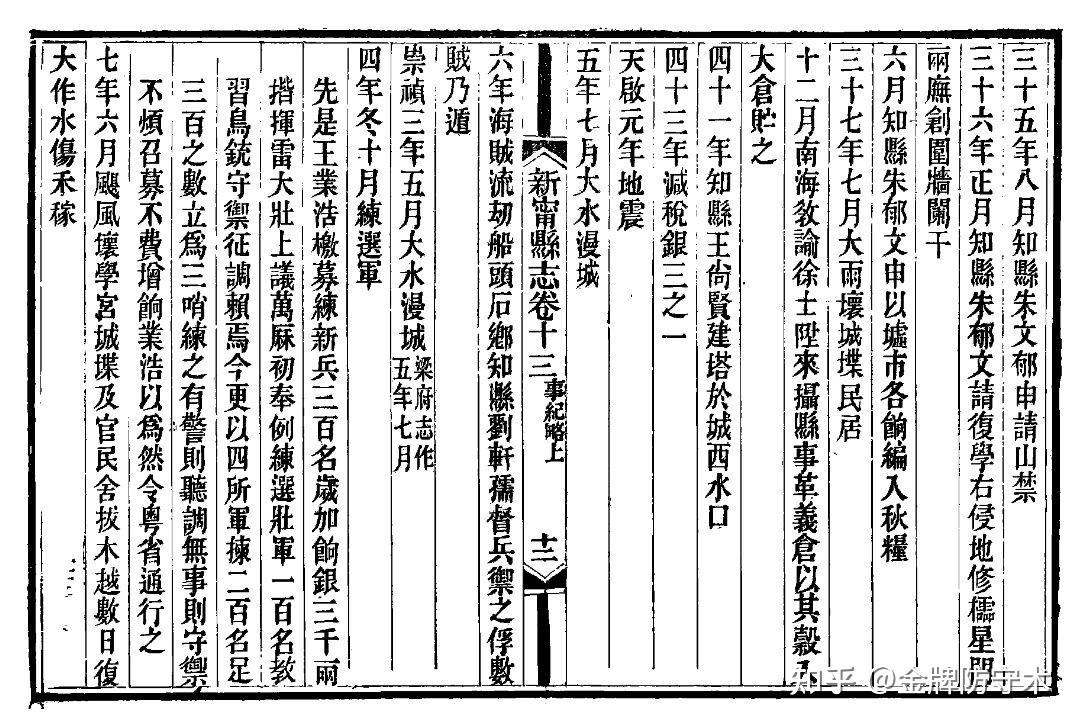 三十五年八月知縣朱文郁申請山禁
三十六年正月知縣朱郁文請復學右侵地修櫺星門
兩廡創圍牆闌干
六月知縣朱郁文申以墟市各餉編入秋糧
三十七年七月大雨壞城堞民居
十二月南海敎諭徐士陞來攝縣事革義倉以其穀入
大倉貯之
四十一年知縣王尙賢建塔於城西水口
四十三年減稅銀三之一
天啟元年地震
五年七月大水漫城
新甯縣志卷十三 事紀略上 十二
六年海賊流刼船頭石鄉知縣劉軒孺督兵禦之俘數
賊乃遁
崇禎三年五月大水漫城 梁府志作五年七月
四年冬十月練選軍
先是王業浩檄募練新兵三百名歲加餉銀三千兩
揩揮雷大壯上議萬厤初奉例練選壯軍一百名敎
習鳥銃守禦征調賴焉今更以四所軍揀二百名足
三百之數立爲三哨練之有警則聽調無事則守禦
不煩召募不費增餉業浩以爲然令粤省通行之
七年六月颶風壞學宮城堞及官民舍拔木越數日復
大作水傷禾稼
知乎 @金牌防守木